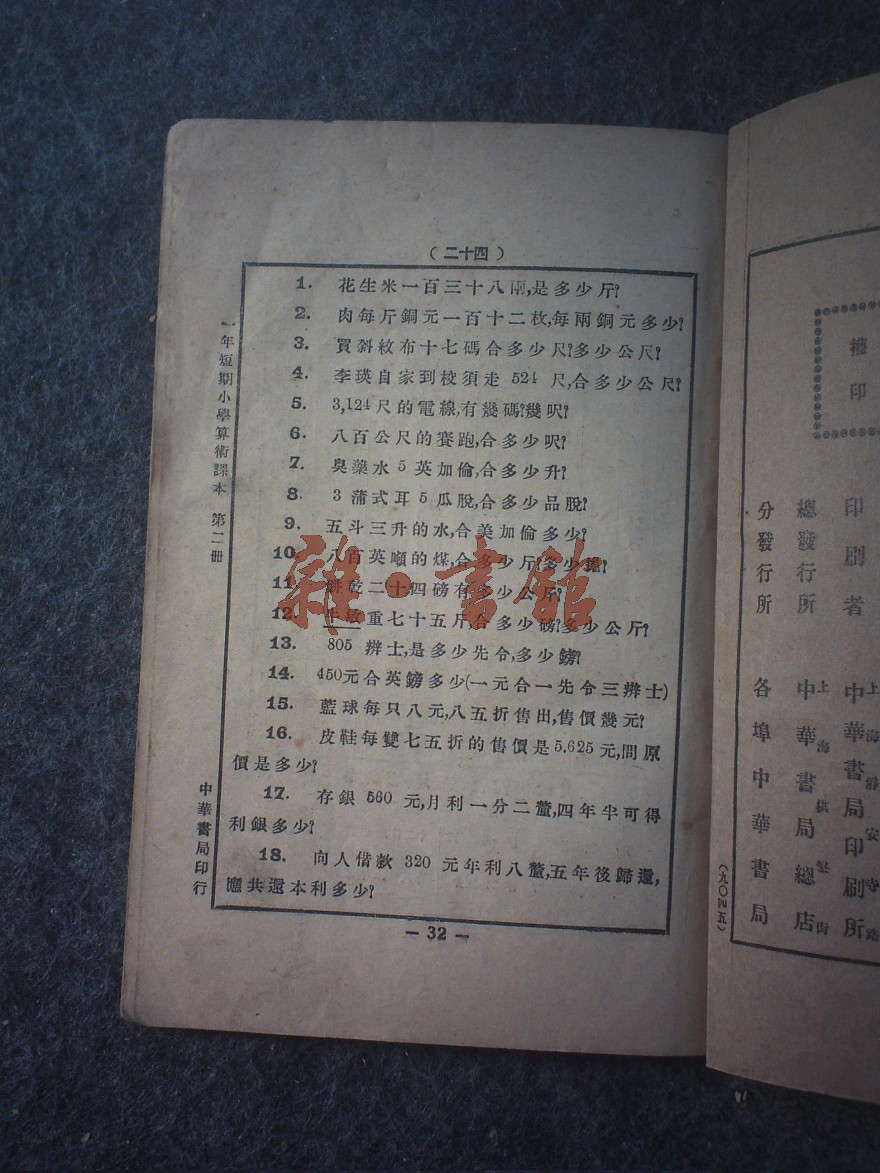 （二十四）
1. 花生米一百三十八兩,是多少斤?
2. 肉每斤銅元一百十二枚,每兩銅元多少?
3. 買斜紋布十七碼合多少尺?多少公尺?
4. 李瑛自家到校須走 524 尺,合多少公尺?
5. 3,124 尺的電線,有幾碼?幾呎?
6. 八百公尺的賽跑,合多少呎?
7. 臭藥水 5 英加倫,合多少升?
8. 3 蒲式耳 5 瓜脫,合多少品脫?
9. 五斗三升的水,合美加倫多少?
10. 八百英噸的煤,合多少斤?多少
11. 餅乾二十四磅有多少公斤?
12. 敏重七十五斤,合多少磅?多少公斤?
13. 805 辨士,是多少先令,多少鎊?
14. 450元合英鎊多少(一元合一先令三辨士)
15. 藍球每只八元,八五折售出,售價幾元?
16. 皮鞋每雙七五折的售價是5.625元,問原
價是多少?
17. 存銀 560 元,月利一分二釐,四年半可得
利銀多少?
18. 向人借款 320 元年利八釐,五年後歸還,
應共還本利多少?
— 32 —
一年短期小學算術課本 第二冊
中華書局印行
雜·書館
印
印刷者 上海靜安寺路 中華書局印刷所
總發行所 上海棋盤街 中華書局總店
分發行所 各埠中華書局
（九〇四五）